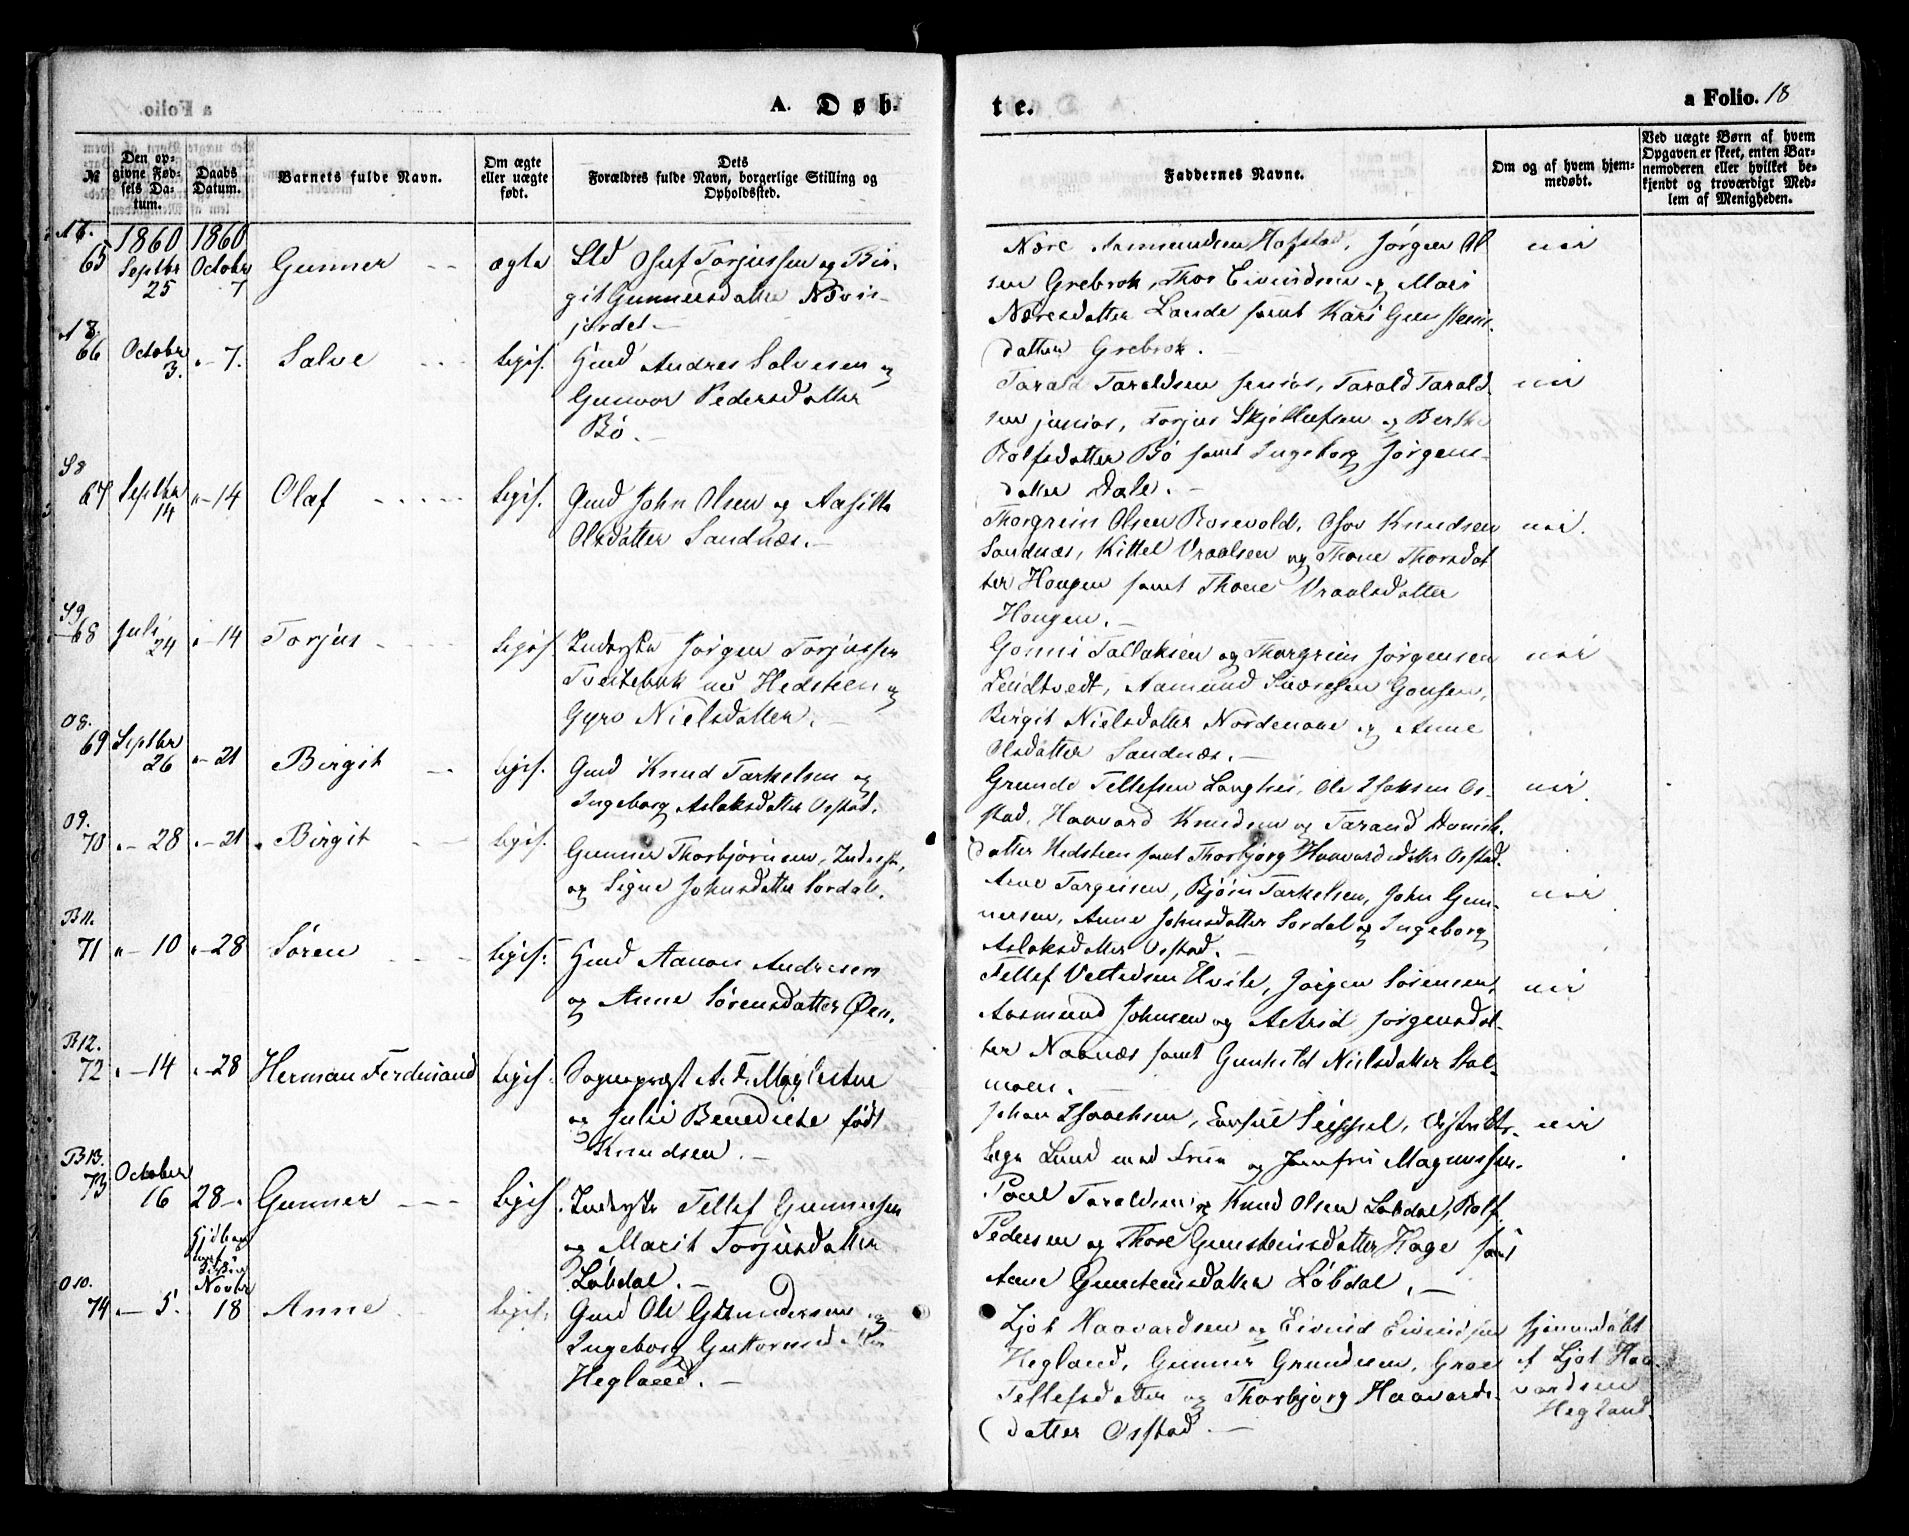 A. Døb-
te.
a Folio. 18
№
Den op-
givne Fød-
sels Da-
tum.
Daabs
Datum.
Barnets fulde Navn.
Om ægte
eller uægte
født.
Dets
Forældres fulde Navn, borgerlige Stilling og
Opholdssted.
Faddernes Navne.
Om og af hvem hjem-
medøbt.
Ved uægte Børn af hvem
Opgaven er skeet, enten Bar-
nemoderen eller hvilket be-
kjendt og troværdigt Med-
lem af Menigheden.
65
1860
Septbr
25
1860
Octobr
7
Gunner
ægte
Olef Torjussen og Bir-
git Gunnersdatter
jordet
Nære Aamundsen Hofstad, Jørgen Ol-
sen Grebrok, Thor Eivindsen og Mari
Næresdatter Lande samt Kari Gunstens-
datter Grebrok.
nei
A 8.
66
Octobr
3.
" 7.
Salve
ligis.
Gmd Andres Salvesen og
Gunvor Pedersdatter
Bø.
Tarald Taraldsen senior, Tarald Tarald-
sen junior, Torjus Skjøllufsen og Berthe
Rolfsdatter Bø samt Ingeborg Jørgens-
datter Dale.
nei
S 8
67
Septbr
14
" 14
Olaf
ligis.
Gmd John Olsen og Aasille
Olsdatter Sandnæs.
Thorgrim Olsen Rosevold, Osov Knudsen
Sandnæs, Kittel Vraalsen og Thone Thorsdat
ter Hougen samt Thone Vraalsdatter
Hougen.
nei.
S 9
68
Juli
24
" 14
Torjus
ligis
Inderste Jørgen Torjussen
Tveitebuk nu Hedsteen og
Gyro Nielsdatter.
Gonni Tallaksen og Thorgrim Jørgensen
Leudtvedt, Aamund
Birgit Nielsdatter Nordenaae og Anne
Olsdatter Sandnæs.
nei
O 8.
69
Septbr
26
" 21
Birgit
ligis.
Gmd Knud Tarkelsen og
Ingeborg Aslaksdatter Osstad.
Grunde Tellefsen Langhei, Ole Isaksen Os-
stad, Haavard Knudsen og Tarand
datter Hedsteen samt Thorbjorg Haavardsdatter Osstad.
nei.
O 9.
70
" 28
" 21
Birgit
ligis.
Gunner Thorbjørnsen, Inderste,
og Signe Johnsdatter Sordal.
Arne Torgeisen, Bjørn Tarkelsen, John Gun-
nersen, Anne Johnsdatter Sordal og Ingeborg
Aslaksdatter Osstad.
nei
B 11.
71
" 10
" 28
Søren
ligis.
Gmd Aanon Andresen
og Anne Sørensdatter Øen.
Tellef Vettesen Hvile, Jørgen Sørensen,
Aasmund Johnsen og Astrid Jørgensdat-
ter Naanæs samt Gunhild Nielsdatter Stol-
moen.
nei
B 12.
72
" 14
" 28
Herman Ferdinand
ligis.
Sognepræst A. F. Møglestue
og Julie Benedicte født
Knudsen.
Johan Isaachsen, Consul Seippel, Distrikts-
læge Lund med Frue og Jomfru Magnussen.
nei
B 13.
73
October
16
28
Gunner
ligis.
Inderste Tellef Gunnersen
og Marit Torjusdatter
Løbdal.
Poul Taraldsen og Knud Olsen Løbdal, Rolf
Pedersen og Thore Gunsteinsdatter Hage samt
Anne Gunsteinsdatter Løbdal.
O 10.
74
" 5.
Novbr
18
Anne
ligis.
Gmd Ole Gundersen og
Ingeborg Guttormsdatter
Hegland.
Ljot Haavardsen og Eivind Eivindsen
Hegland, Gunner Grundesen, Groe
Tellefsdatter og Thorbjorg Haavards-
datter Osstad.
hjemmedøbt
af Ljot Haa-
vardsen
Hegland.